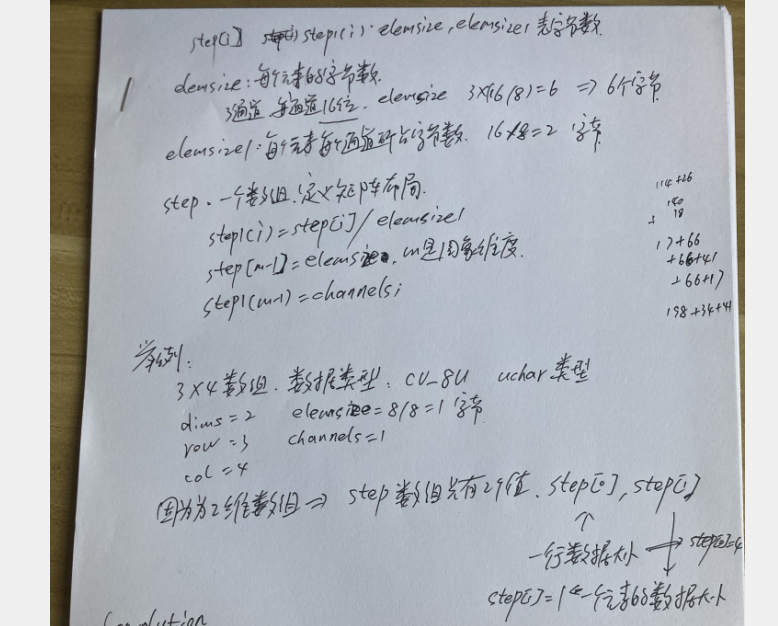 step[i] step1(i). elemsize, elemsize1 表字节数.
elemsize: 每个元素的字节数.
3通道 每通道16位. elemsize 3×(16/8)=6 ⇒ 6个字节
elemsize1: 每个元素每个通道所占字节数. 16/8=2 字节
step. 一个数组.定义矩阵布局.
step1(i)=step[i]/elemsize1
step[m-1]=elemsize, m是图象维度.
step1(m-1)=channels;
114+26
140
+ 18
17+66
+66+41
+66+17
198+34+41
举例:
3×4数组. 数据类型: CV_8U uchar类型
dims=2 elemsize=8/8=1字节
row=3 channels=1
col=4
因为为2维数组 ⇒ step数组只有2个值. step[0], step[1]
一行数据大小 → step[0]=4
step[1]=1 ← 一个元素的数据大小